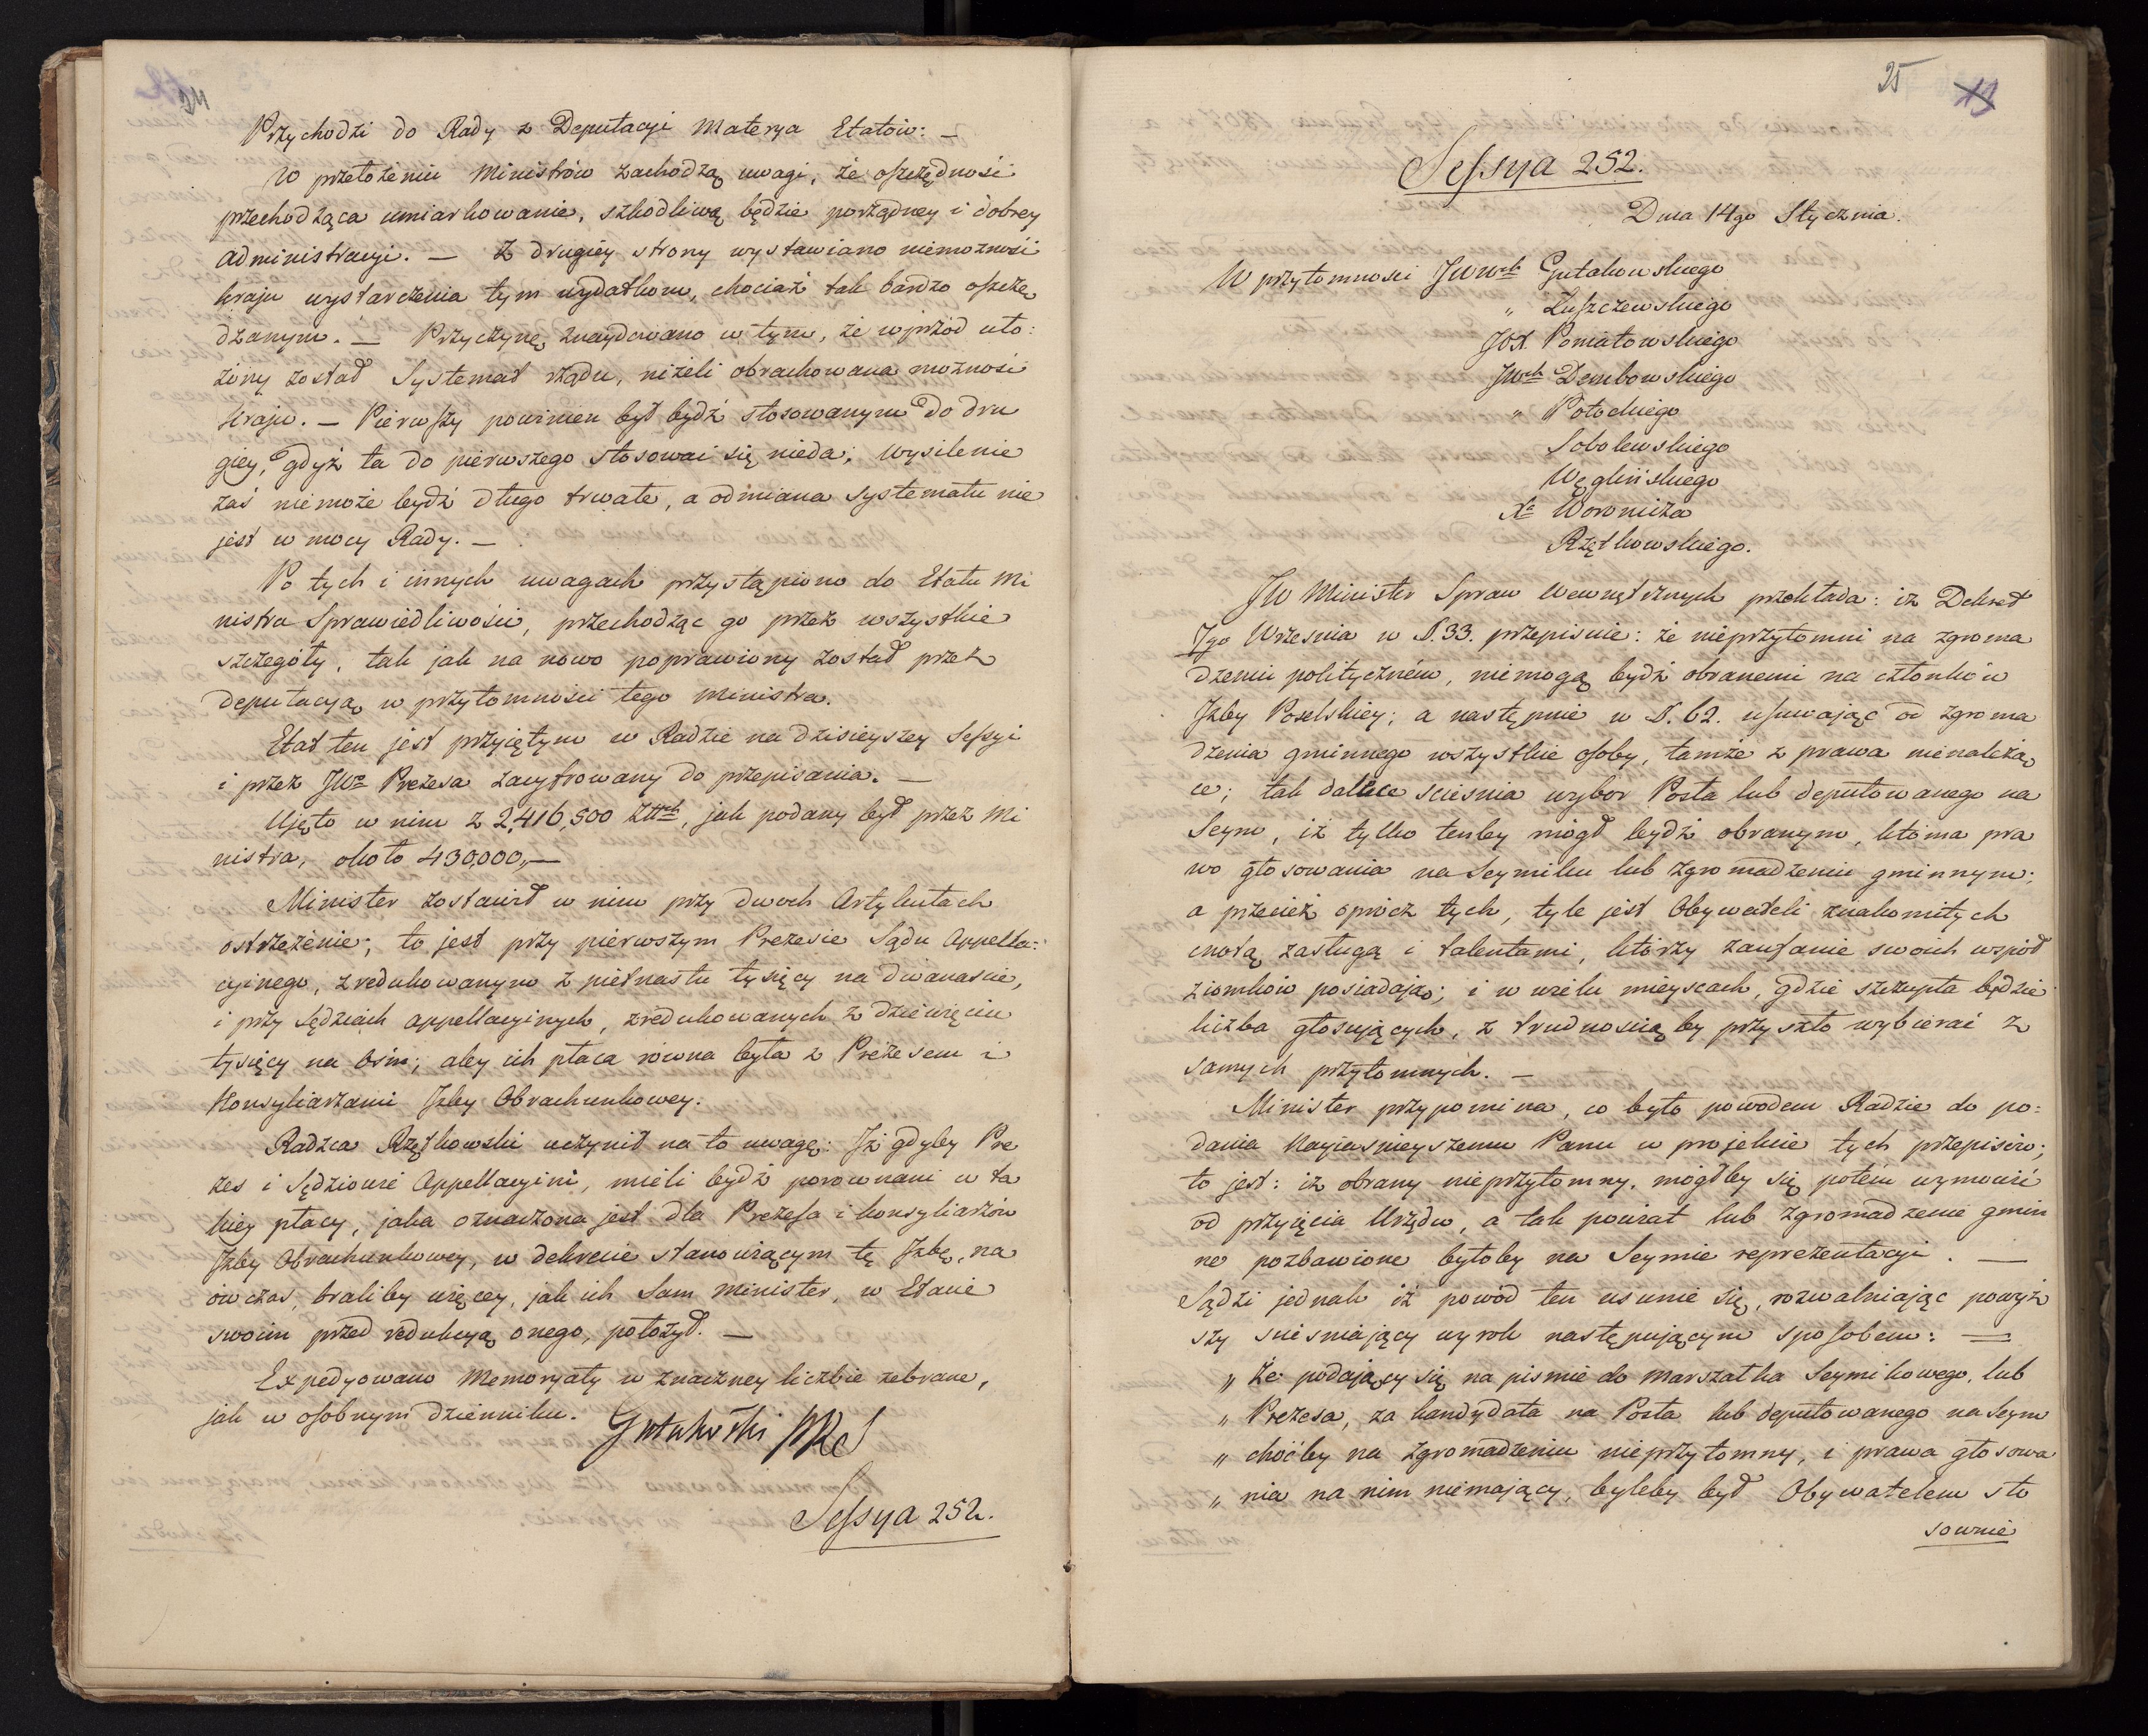 24
Przychodzi do Rady z Deputacyi Materya Etatów: —
W przełożeniu Ministrów zachodzą uwagi, że oszczędność
przechodząca umiarkowanie, szkodliwą będzie porządney i dobrey
Administracyi. — Z drugiey strony wystawiano niemożność
kraju wystarczenia tym wydatkom, chociaż tak bardzo oszczę
dzanym. — Przyczynę znaydowano w tym, że wprzód uło:
żony został Systemat rządu, niżeli obrachowana możność
kraju. — Pierwszy powinien był bydź stosowanym do dru
giey, gdyż ta do pierwszego stosować się nieda; wysilenie
zaś niemoże bydź długo trwałe, a odmiana systematu nie
jest w mocy Rady. —
Po tych i innych uwagach przystąpiono do Etatu Mi
nistra Sprawiedliwości, przechodząc go przez wszystkie
szczegóły, tak jak na nowo poprawiony został przez
deputacyą w przytomności tego Ministra.
Etat ten jest przyiętym w Radzie na dzisieyszey Sessyi
i przez JWo Prezesa zacyfrowany do przepisania. —
Ujęto w nim z 2,416,500 Złtch, jak podany był przez Mi
nistra, około 430,000,—
Minister zostawił w nim przy dwoch Artykułach
ostrzeżenie; to jest przy pierwszym Prezesie Sądu Appella:
cyinego, zredukowanym z piętnastu tysięcy na dwanaście,
i przy Sędziach appellacyinych, zredukowanych z dziewięciu
tysięcy na Ośm; aby ich płaca równa była z Prezesem i
Konsyliarzami Izby Obrachunkowey.
Radzca Rzętkowski uczynił na to uwagę: Iż gdyby Pre
zes i Sędziowie Appellacyini, mieli bydź porownani w ta
kiey płacy, jaka oznaczona jest dla Prezesa i konsyliarzów
Izby Obrachunkowey, w dekrecie stanowiącym tę Izbę, na
ówczas, braliby więcey, jak ich Sam Minister, w Etacie
swoim przed redukcyą onego, położył. —
Expedyowano Memoryały w znaczney liczbie zebrane,
jak w osobnym dzienniku. Gutakowski PRS
Sessya 252.
25
13
Sessya 252.
Dnia 14go Stycznia.
W przytomności JWWch Gutakowskiego
„ Łuszczewskiego
JOX Poniatowskiego
JWch Dembowskiego
„ Potockiego
Sobolewskiego
Węglińskiego
Xa Woronicza
Rzętkowskiego.
JW Minister Spraw Wewnętrznych przekłada: iż Dekret
7go Wrzesnia w §. 33. przepisuie: że nieprzytomni na zgroma
dzeniu polityczném, niemogą bydź obranemi na członków
Izby Poselskiey; a następnie w §. 62. usuwając od zgroma
dzenia gminnego wszystkie osoby, tamże z prawa nienależą
ce; tak dalece scieśnia wybor Posła lub deputowanego na
Seym, iż tylko tenby mógł bydź obranym, kto ma pra
wo głosowania na Seymiku lub zgromadzeniu gminnym;
a przecież oprócz tych, tyle jest Obywateli znakomitych
cnotą zasługą i talentami, którzy zaufanie swoich wspoł
ziomków posiadają; i w wielu mieyscach, gdzie szczupła będzie
liczba głosujących, z trudnością by przyszło wybierać z
samych przytomnych. —
Minister przypomina, co było powodem Radzie do po:
dania Nayiaśnieyszemu Panu w projekcie tych przepisów;
to jest: iż obrany nieprzytomny, mógłby się potém wymówić
od przyięcia Urzędu, a tak powiat lub Zgromadzenie gmin
ne pozbawione byłoby na Seymie reprezentacyi. —
Sądzi jednak iż powód ten usunie się, rozwalniając powyż
szy scieśniający wyrok następującym sposobem: —
„ Że podający się na pismie do Marszałka Seymikowego, lub
„ Prezesa, za kandydata na Posła lub deputowanego na Seym
„ choćby na zgromadzeniu nieprzytomny, i prawa głosowa
„ nia na nim niemający, byleby był Obywatelem sto
sownie